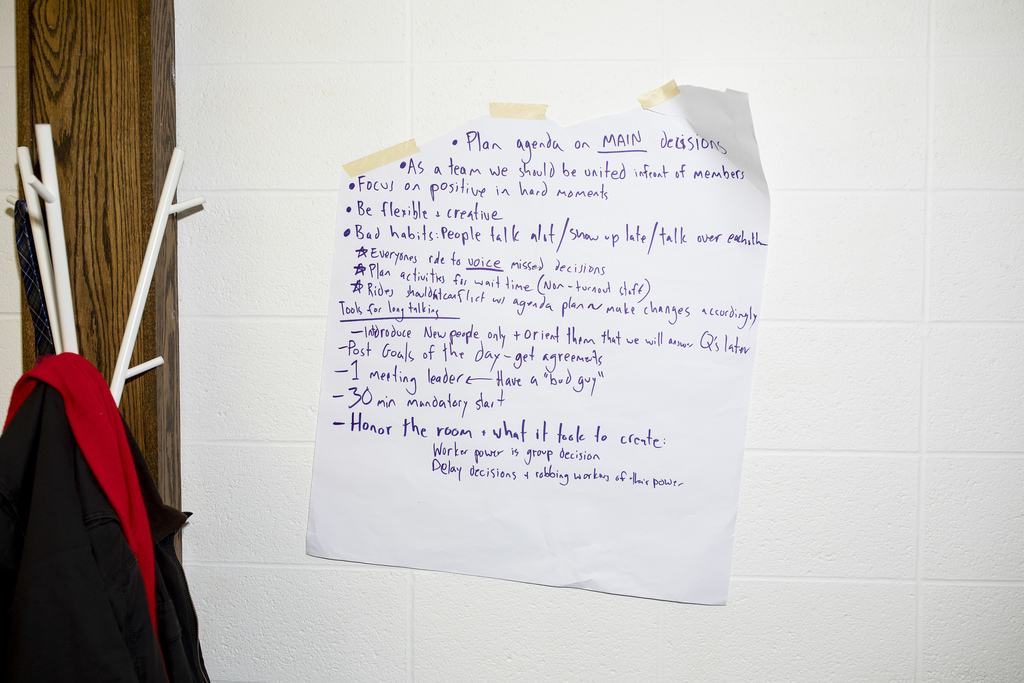 • Plan agenda on MAIN decisions
• As a team we should be united infront of members
• Focus on positive in hard moments
• Be flexible + creative
• Bad habits: People talk alot / show up late / talk over eachoth
☆ Everyones role to voice missed decisions
☆ Plan activities for wait time (Non-turnout stuff)
☆ Rides shouldnt conflict w/ agenda plan make changes accordingly
Tools for long talking
- Introduce New people only + orient them that we will answer Q's later
- Post Goals of the day - get agreements
- 1 meeting leader ← Have a "bad guy"
- 30 min mandatory start
- Honor the room + what it took to create:
Worker power is group decision
Delay decisions + robbing workers of their power